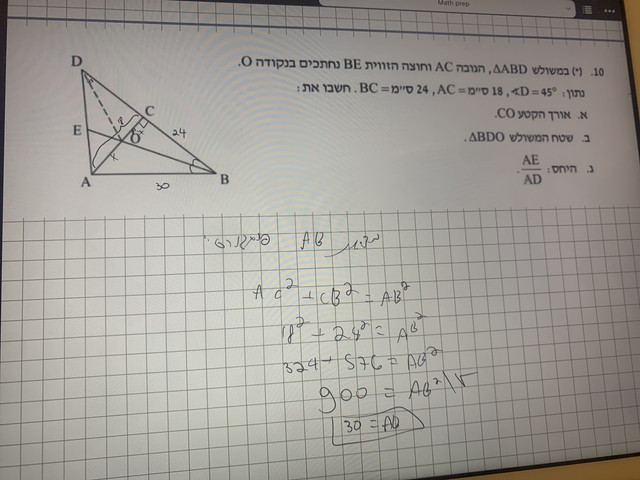 Math prep
10. (י) במשולש ΔABD, הגובה AC וחוצה הזווית BE נחתכים בנקודה O.
נתון: ∢D = 45°, 18 ס״מ = AC, 24 ס״מ = BC. חשבו את:
א. אורך הקטע CO.
ב. שטח המשולש ΔBDO.
ג. היחס: AE/AD.
D
C
24
E
O
x
A
30
B
AB
AC² + CB² = AB²
18² + 24² = AB²
324 + 576 = AB²
900 = AB² /√
30 = AB